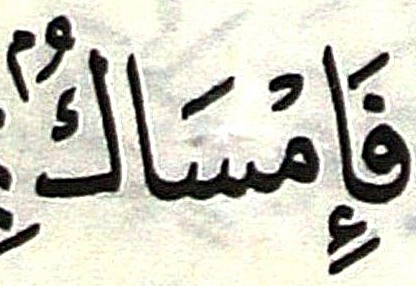 فَإِمْسَاكٌۢ